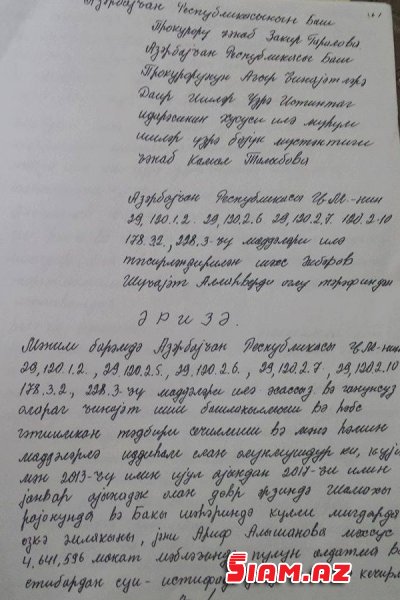 Азәрбајҹан Республикасынын Баш
Прокурору ҹәнаб Закир Гараловa
Азәрбајҹан Республикасы Баш
Прокурорлуғун Ағыр Ҹинајәтләрә
Даир Ишләр Үзрә Истинтаг
идарәсинин хүсуси илә мүһүм
ишләр үзрә бөјүк мүстәнтиги
ҹәнаб Камал
Азәрбајҹан Республикасы ҸМ.-нин
29,120.1.2. 29,120.2.6 29,120.2.7. 120.2-10
178.32., 228.3-ҹү маддәләри илә
тәгсирләндирилән шәхс Әкбәров
Шүҹајәт Аллаһверди оғлу тәрәфиндән
ӘРИЗӘ.
Мәним барәмдә Азәрбајҹан Республикасы ҸМ-нин
29,120.1.2., 29,120.2.5., 29,120.2.6., 29,120.2.7., 29,120.2.10
178.3.2., 228.3-ҹү маддәләри илә әсассыз вә ганунсуз
олараг ҹинајәт иши башланылмыш вә һәбс
гәтиимкан тәдбири сечилмиш вә мәнә һәмин
маддәләрлә иттиһам елан олунмушдур ки, ҝуја
мән 2013-ҹү илин ијул ајындан 2017-ҹи илин
јанвар ајынадәк олан дөвр әрзиндә Шамахы
рајонунда вә Бакы шәһәриндә күлли мигдарда
өзҝә әмлакыны, јәни Ариф Алышанова мәхсус
4,641,596 манат мәбләғиндә пулун алдатма вә
етибардан суи-истифадә
SİAM.AZ